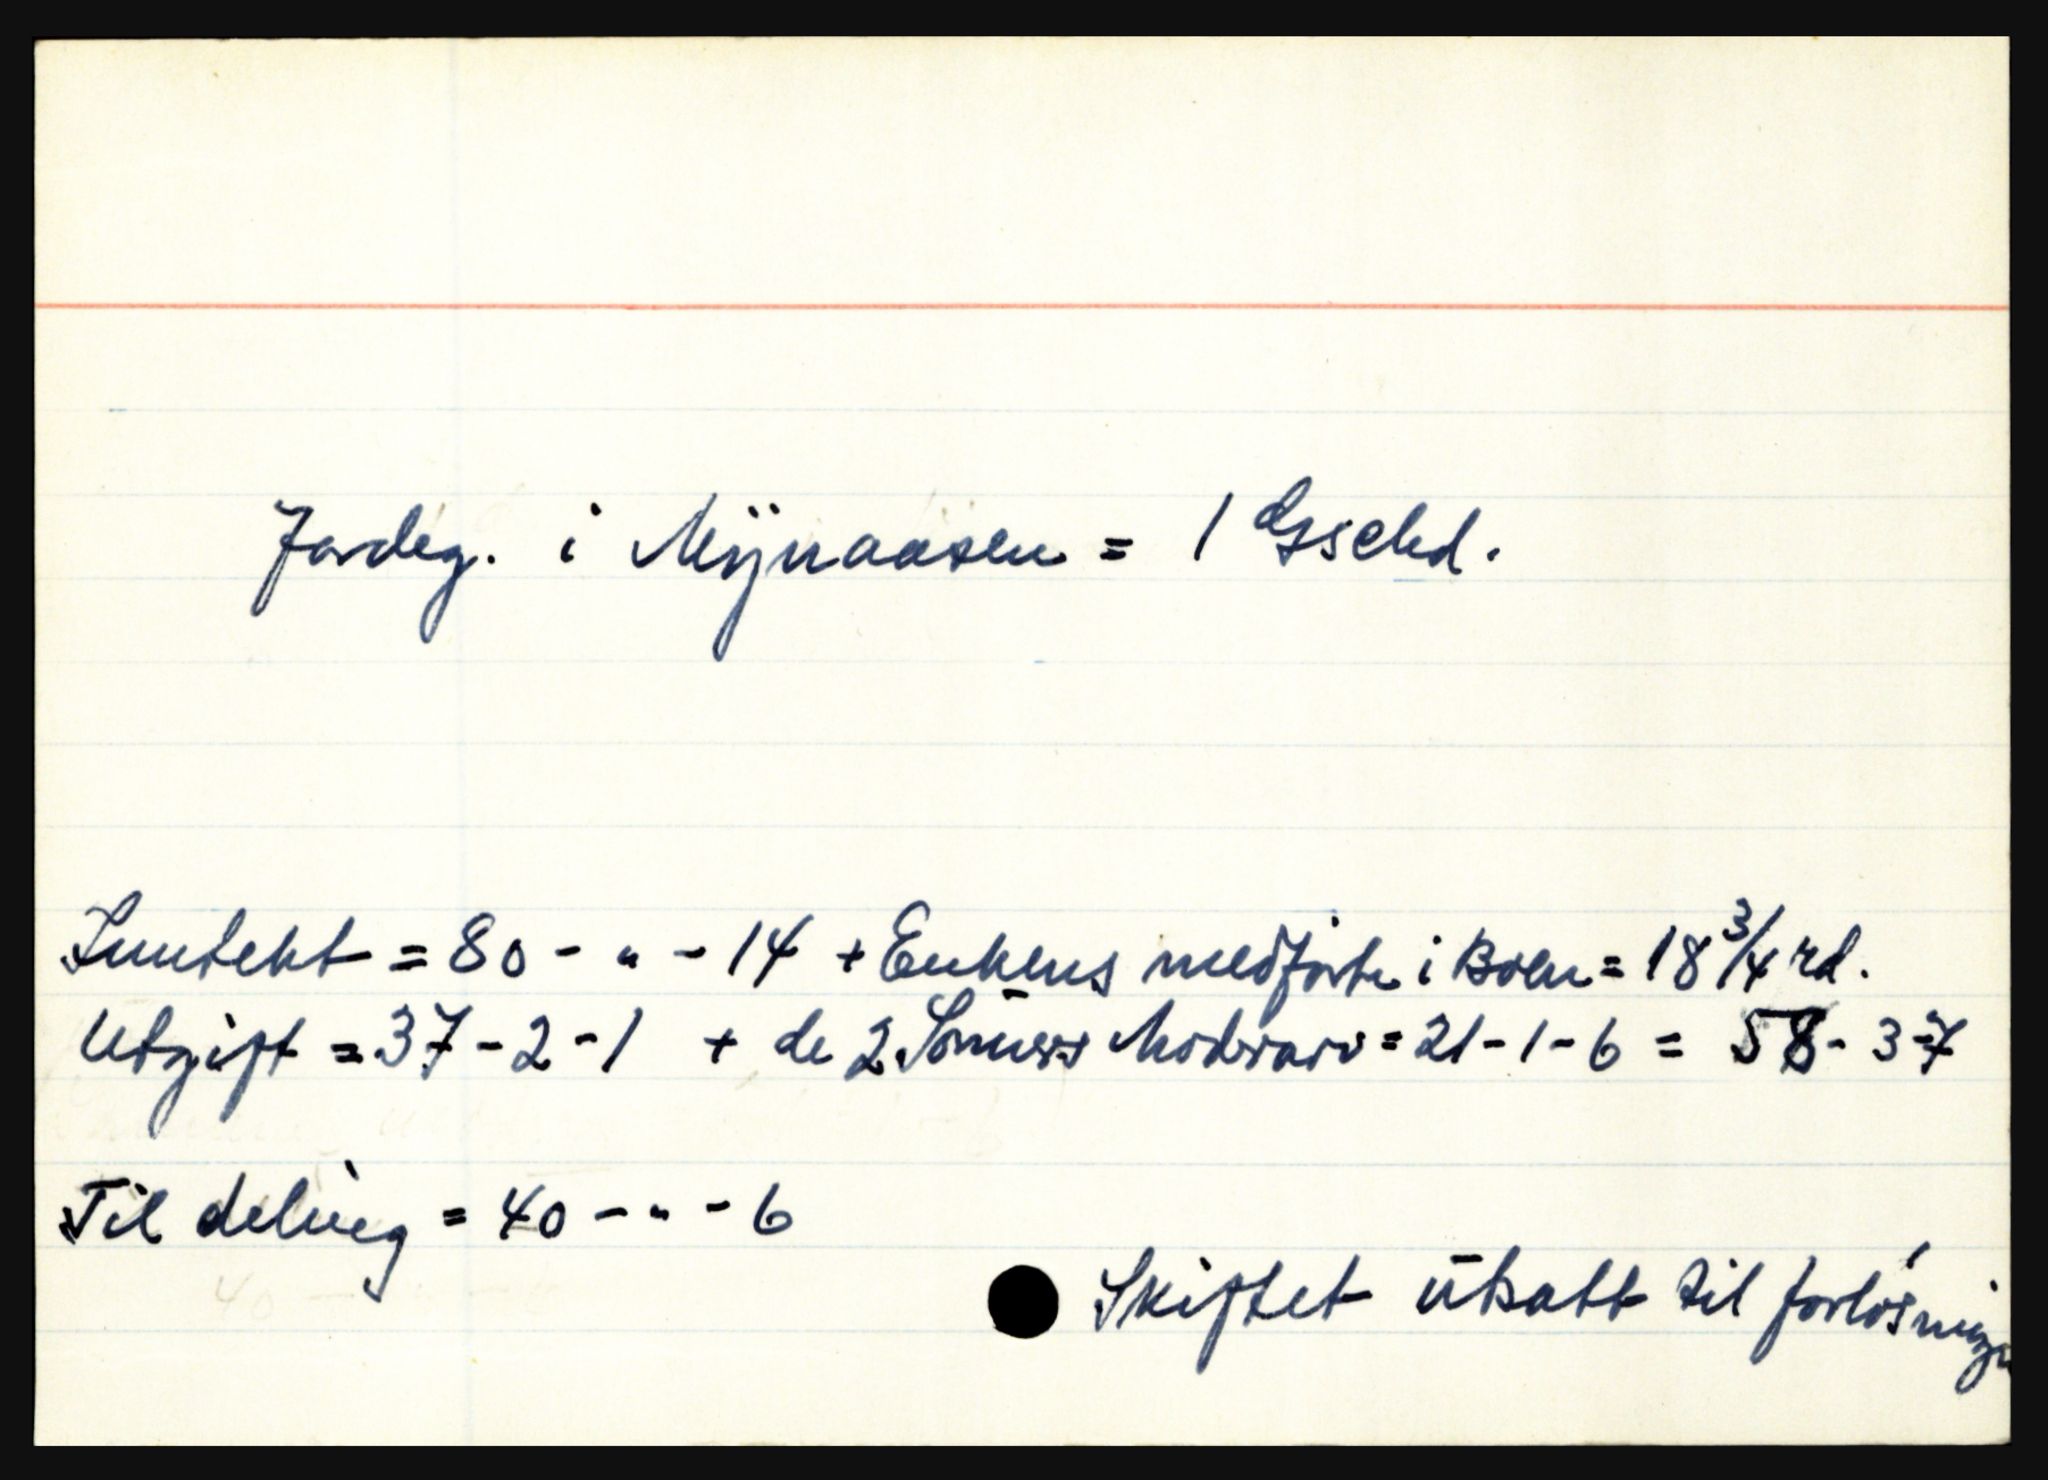 Jordeg. i Mÿnaasen = 1 Gsschd.
Inntekt = 80 - " - 14 + Enkens medførte i Boen = 18 3/4 rd.
Utgift = 37 - 2 - 1 + de 2 Sønners Moderarv = 21 - 1 - 6 = 58 - 3 - 7
Til deling = 40 - " - 6
Skiftet utsatt til forløsningen